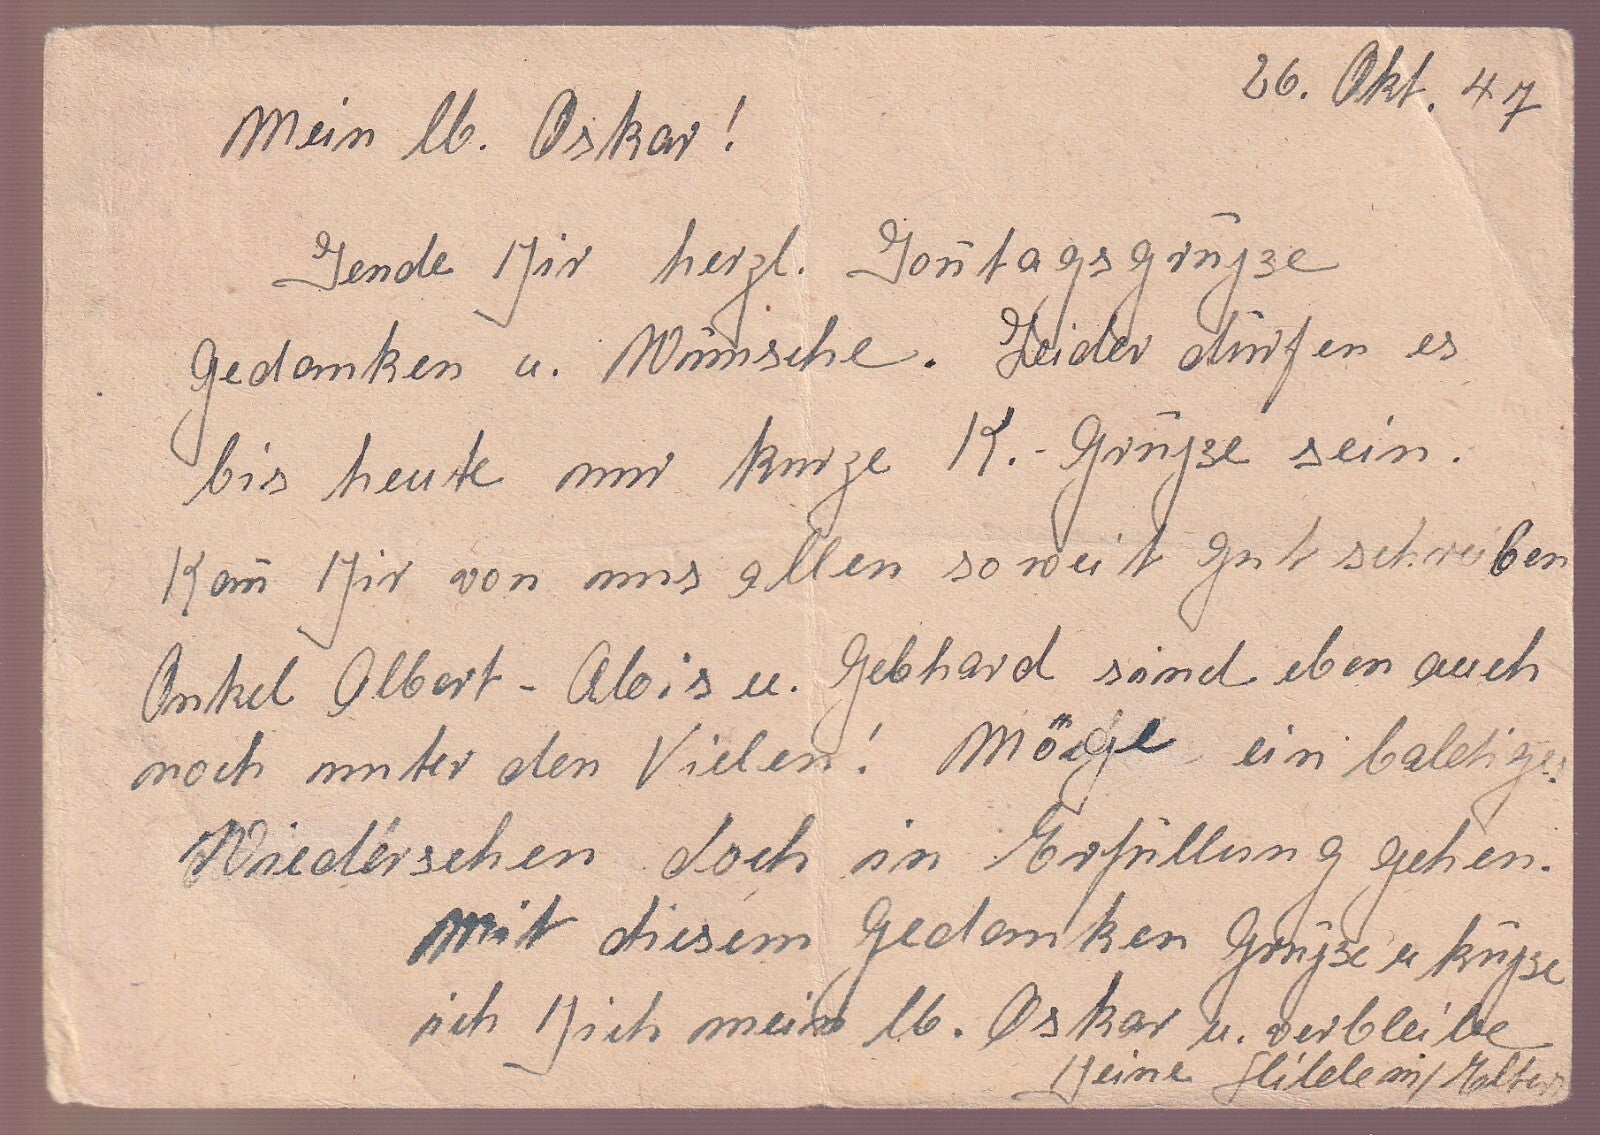 26. Okt. 47
Mein lb. Oskar!
Sende Dir herzl. Son̄tagsgrüsse
Gedanken u. Wünsche. Leider dürfen es
bis heute nur kurze K.-Grüsse sein.
Kan̄ Dir von uns allen soweit gut schreiben
Onkel Albert - Alois u. Gebhard sind eben auch
noch unter den Vielen! Möge ein baldiges
Wiedersehen doch in Erfüllung gehen.
Mit diesem Gedanken Grüsse u küsse
ich Dich mein lb. Oskar u. verbleibe
Deine